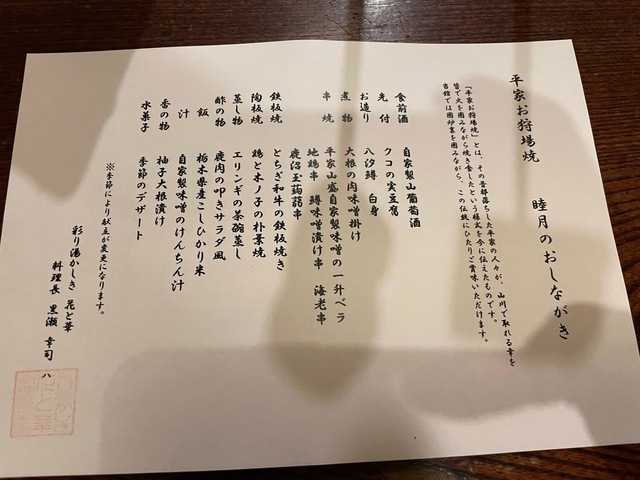 平家お狩場焼　睦月のおしながき
「平家お狩場焼」とは、その昔部落ちした平家の人々が、山川で取れる幸を
皆で火を囲みながら焼き食したという様式を今に伝えたものです。
当館では囲炉裏を囲みながら、この伝統にひたりご賞味いただけます。
食前酒　自家製山葡萄酒
先付　クコの実豆腐
お造り　八汐鱒　白身
煮物　大根の肉味噌掛け
串焼　平家山盛自家製味噌の一升ベラ
地鶏串　鱒味噌漬け串　海老串
鹿沼玉蒟蒻串
鉄板焼　とちぎ和牛の鉄板焼き
陶板焼　鶏と木ノ子の朴葉焼
蒸し物　エリンギの茶碗蒸し
酢の物　鹿肉の叩きサラダ風
飯　栃木県産こしひかり米
汁　自家製味噌のけんちん汁
香の物　柚子大根漬け
水菓子　季節のデザート
※季節により献立が変更になります。
彩り湯かしき　花と華
料理長　黒瀬　幸司　八